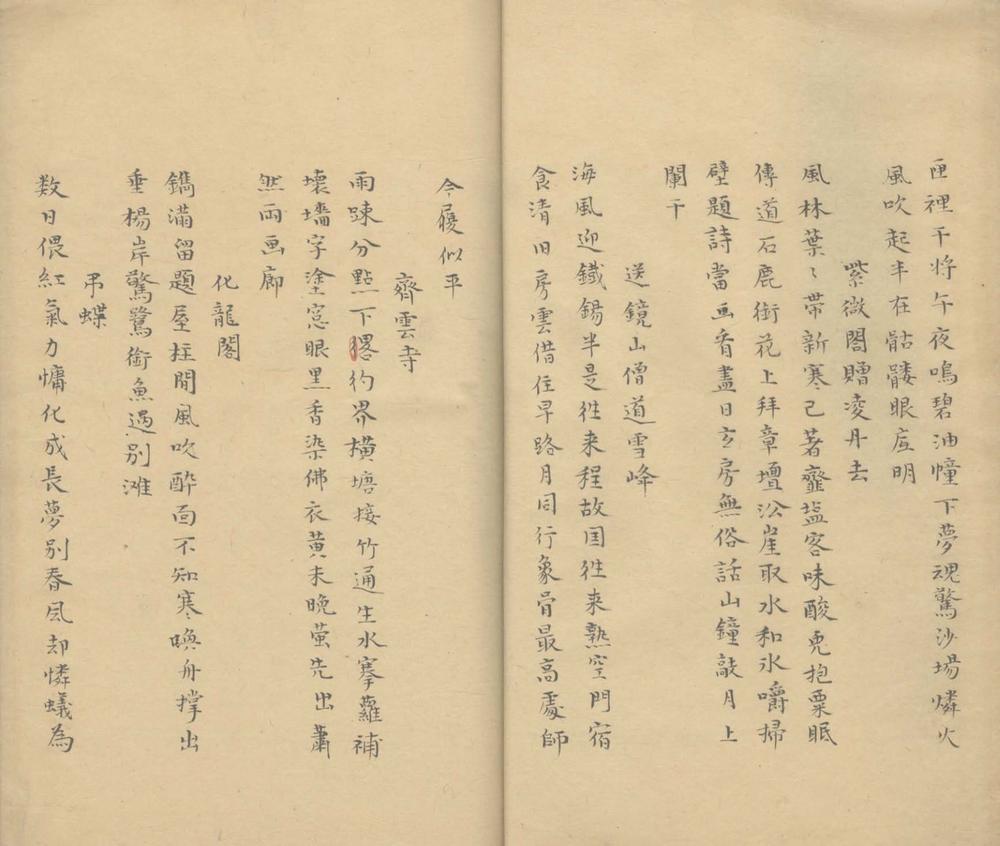 匣裡干将午夜鳴碧油幢下夢魂驚沙場燐火
風吹起半在骷髏眼底明
紫微閣贈凌丹去
風林葉〻带新寒己著虀塩客味酸鬼抱粟眠
傳道石鹿銜花上拜章壇㳂崖取水和氷嚼掃
壁題詩當画看盡日玄房無俗話山鐘敲月上
闌干
送鏡山僧道雪峰
海風迎鐵錫半是徃来程故国徃来熟空門宿
食清旧房雲借住早路月同行象骨最高處師
今履似平
齊雲寺
雨踈分點下畧彴界橫塘接竹通生水搴蘿補
壞墻字塗窓眼黒香染佛衣黄未晚萤先出蕭
然両画廊
化龍閣
鐫满留題屋柱閒風吹酔面不知寒喚舟撑出
垂楊岸驚鷺銜魚過别滩
弔蝶
数日偎紅氣力慵化成長夢别春风却憐蟻為